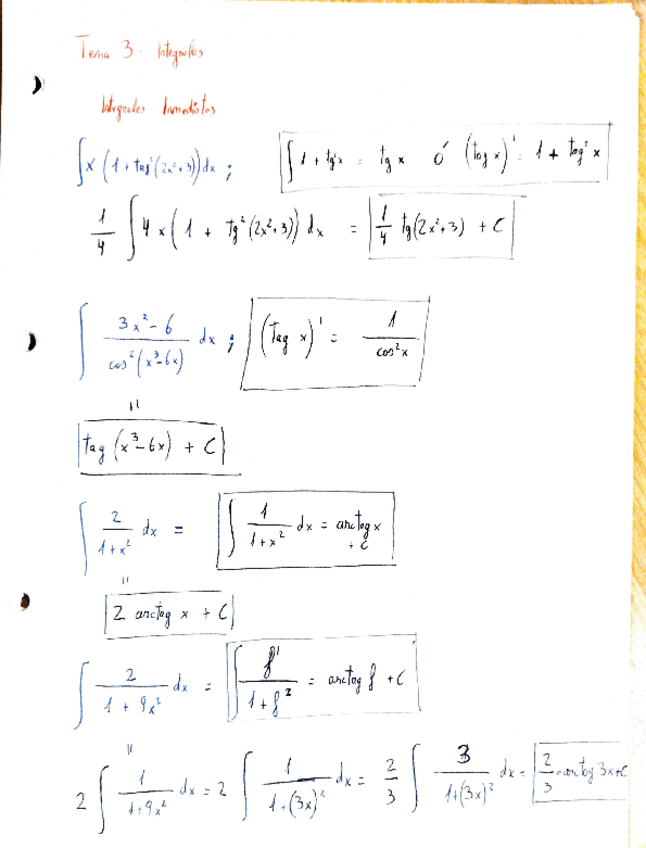 Tema 3. Integrales
Integrales Inmediatas
∫x (1 + tag²(2x²+3)) dx ; ∫1 + tg²x = tg x ó (tag x)' = 1 + tag² x
1/4 ∫4x (1 + tg²(2x²+3)) dx = 1/4 tg(2x²+3) + C
∫ (3x²-6)/(cos²(x³-6x)) dx ; (Tag x)' = 1/cos²x
=
tag (x³-6x) + C
∫ 2/(1+x²) dx = ∫ 1/(1+x²) dx = arctag x + C
=
2 arctag x + C
∫ 2/(1+9x²) dx = ∫ f'/(1+f²) = arctag f + C
=
2 ∫ 1/(1+9x²) dx = 2 ∫ 1/(1+(3x)²) dx = 2/3 ∫ 3/(1+(3x)²) dx = 2/3 arctag 3x+C